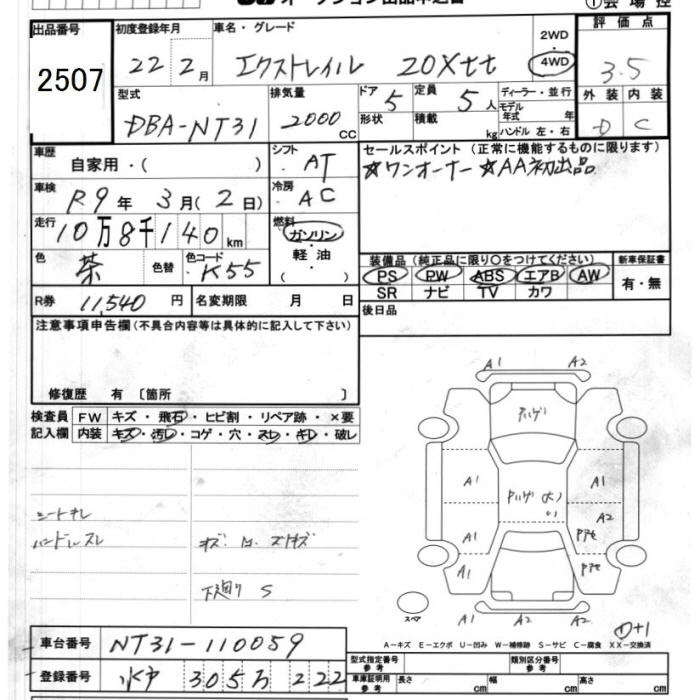 出品番号 初度登録年月 車名・グレード 2WD 評価点
2507 22 2月 エクストレイル 20Xtt 4WD 3.5
型式 排気量 ドア 定員 ディーラー・並行 外装 内装
DBA-NT31 2000 CC 5 5人 モデル年式 年 D C
形状 積載 kg ハンドル 左・右
車歴 シフト セールスポイント(正常に機能するものに限ります)
自家用・( ) AT ☆ワンオーナー ☆AA初出品
車検 R9年 3月(2日) 冷房 AC
走行 10万8千140km 燃料 ガソリン・軽油・( )
色 茶 色替 色コード K55
装備品(純正品に限り○をつけてください) 新車保証書
PS PW ABS エアB AW 有・無
SR ナビ TV カワ
R券 11,540円 名変期限 月 日 後日品
注意事項申告欄(不具合内容等は具体的に記入して下さい)
修復歴 有 〔箇所 〕
検査員 FW キズ・飛石・ヒビ割・リペア跡・×要
記入欄 内装 キズ・汚レ・コゲ・穴・スレ・キレ・破レ
A1 A2
A1 A1
A2
A1
A1
A1 A2
シートキレ
ハンドルスレ
下廻り S
スペア
A-キズ E-エクボ U-凹み W-補修跡 S-サビ C-腐食 XX-交換済
車台番号 NT31-110059
登録番号 水戸 305 222
型式指定番号 参考 類別区分番号 参考
車庫証明用 参考 長さ cm 幅 cm 高さ cm